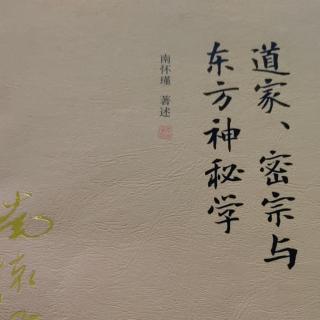 道家、密宗与
东方神秘学
南怀瑾 著述
南怀